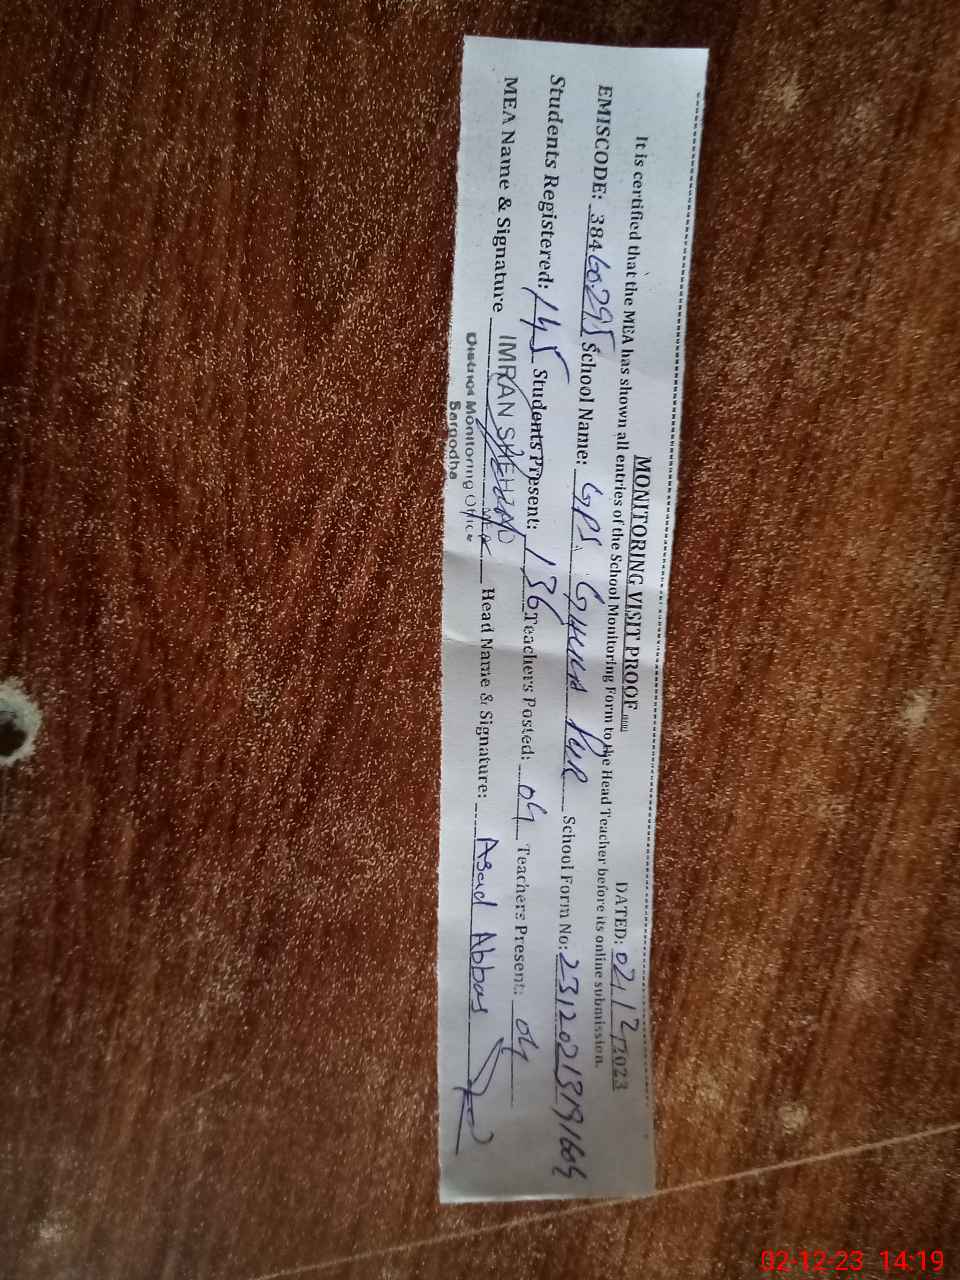 MONITORING VISIT PROOF
DATED: 02/12/2023
It is certified that the MEA has shown all entries of the School Monitoring Form to the Head Teacher before its online submission.
EMISCODE: 38460295 School Name: GPS GHULLA PUR School Form No: 2312021319160
Students Registered: 145 Students Present: 136 Teachers Posted: 04 Teachers Present: 04
MEA Name & Signature IMRAN SHEHZAD MEA Head Name & Signature: Asad Abbas
District Monitoring Office
Sargodha
02-12-23 14:19